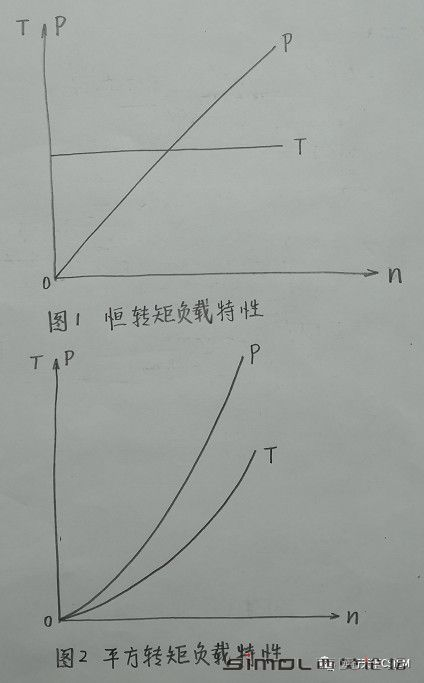 T P
P
T
0
n
图1 恒转矩负载特性
T P
P
T
0
n
图2 平方转矩负载特性